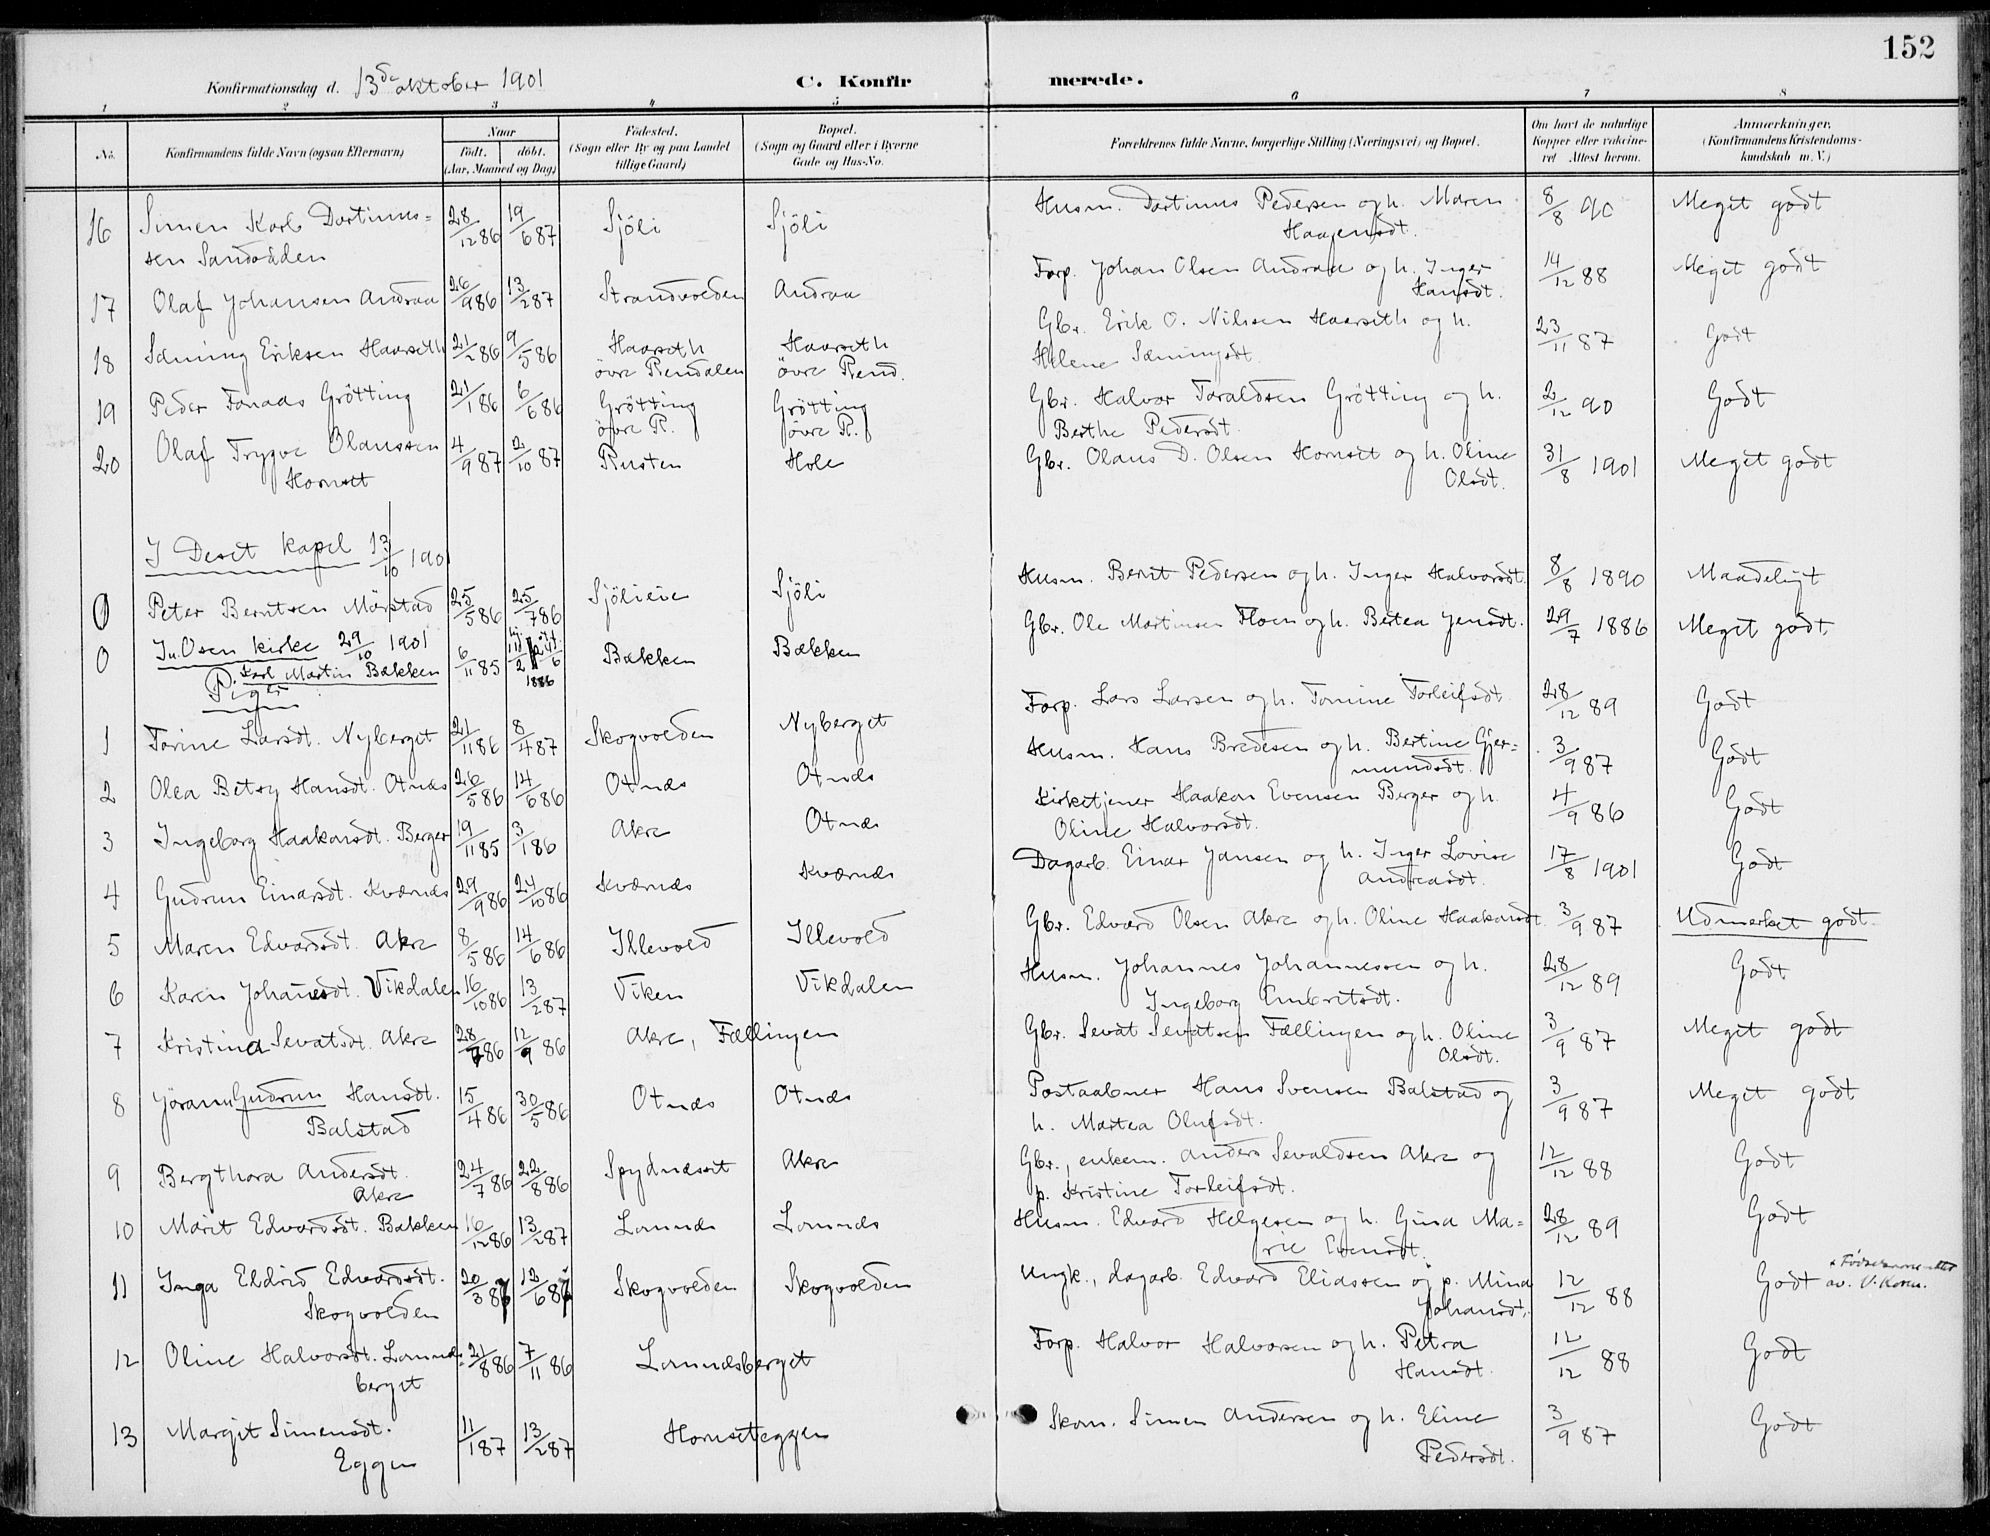 152
Konfirmationsdag d. 13de oktober 1901
C. Konfirmerede.
1 2 3 4 5 6 7 8
No. Konfirmandens fulde Navn (ogsaa Efternavn) Naar født. døbt. (Aar, Maaned og Dag)
Fødested. (Sogn eller By og paa Landet tillige Gaard)
Bopæl. (Sogn og Gaard eller i Byerne Gade og Hus-No.
Forældrenes fulde Navne, borgerlige Stilling (Næringsvei) og Bopæl.
Om havt de naturlige Kopper eller vaccineret Attest herom.
Anmærkninger. (Konfirmandens Kristendomskundskab m. V.)
16 Simen Karl Dortinus= 28/12 86 19/6 87 Sjöli Sjöli Husm. Dortinus Pedersen og h. Maren 8/8 90 Meget godt
sen Sandodden Haagensdt.
17 Olaf Johansen Andraa 26/9 86 13/2 87 Strandvolden Andraa Forp. Johan Olsen Andraa og h. Inger 14/12 88 Meget godt
Hansdt.
18 Sæming Eriksen Haarseth 21/2 86 9/5 86 Haarseth Haarseth Gbr. Erik O. Nilssen Haarseth og h. 23/11 87 Godt
övre Rendalen övre Rend. Helene Sæmingsdt.
19 Peder Grötting 21/1 86 6/6 86 Grötting Grötting Gbr. Halvor Taraldsen Grötting og h. 2/12 90 Godt
övre R. övre R. Berthe Pedersdt.
20 Olaf Trygve Olaussen 4/9 87 2/10 87 Rusten Hole Gbr. Olaus D. Olsen Hornset og h. Oline 31/8 1901 Meget godt
Hornset Olsdt.
I Deset kapel 13/10 1901
0 Peter Berntsen Mörstad 25/5 86 25/7 86 Sjölieie Sjöli Husm. Bernt Pedersen og h. Inger Halvorsdt. 8/8 1890 Maadeligt
I Osen kirke 29/10 1901
0 Karl Martin Bækken 6/11 85 1886 Bækken Bækken Gbr. Ole Martinsen Floen og h. Bertea Jensdt. 29/7 1886 Meget godt
Piger
1 Torine Larsdt. Nyberget 21/11 86 8/4 87 Skogvolden Nyberget Forp. Lars Larsen og h. Tomine Torleifsdt. 28/12 89 Godt
2 Olea Betsy Hansdt. Otnæs 26/5 86 14/6 86 Otnæs Otnæs Husm. Hans Bredesen og h. Bertine Gjer= 3/9 87 Godt
mundsdt.
3 Ingeborg Haakonsdt. Berger 19/11 85 3/1 86 Akre Otnæs Kirketjener Haakon Evensen Berger og h. 4/9 86 Godt
Oline Halvorsdt.
4 Gudrun Einarsdt. Kværnæs 29/9 86 24/10 86 Kværnæs Kværnæs Dagarb. Einar Jansen og h. Inger Lovise 17/8 1901 Godt
Andreasdt.
5 Maren Edvardsdt. Akre 8/5 86 14/6 86 Illevold Illevold Gbr. Edvard Olsen Akre og h. Oline Haakonsdt 3/9 87 Udmerket godt.
6 Karen Johanesdt. Vikdalen 16/10 86 13/2 87 Viken Vikdalen Husm. Johannes Johannessen og h. 28/12 89 Godt
Ingeborg Embretsdt.
7 Kristina Sevatsdt. Akre 28/7 86 12/9 86 Akre, Fællingen Gbr. Sevat Sevatsen Fællingen og h. Oline 3/9 87 Meget godt
Olsdt.
8 Jörann Gudrun Hansdt. 15/4 86 30/5 86 Otnæs Otnæs Postaabner Hans Svensen Balstad og 3/9 87 Meget godt
Balstad h. Martea Olufsdt.
9 Bergthora Andersdt. 24/7 86 22/8 86 Spydnesset Akre Gbr., enkem. Anders Sevaldsen Akre og 12/12 88 Godt
Akre p. Kristine Torleifsdt.
10 Marit Edvardsdt. Bakken 16/12 86 13/2 87 Lomnæs Lomnæs Husm. Edvard Helgesen og h. Gina Ma= 28/12 89 Godt
rie Evensdt.
11 Inga Eldrid Edvardsdt. 20/3 87 12/6 87 Skogvolden Skogvolden Ungk., dagarb. Edvard Eliassen og p. Mina 12/12 88 Godt
Skogvolden Johansdt. av. V. Kom.
12 Oline Halvorsdt. Lomnæs= 21/8 86 7/11 86 Lomnæsberget Forp. Halvor Halvorsen og h. Petra 12/12 88 Godt
berget Hansdt.
13 Margit Simensdt. 11/1 87 13/2 87 Hornseteggen Skom. Simen Andersen og h. Eline 3/9 87 Godt
Eggen Pedersdt.